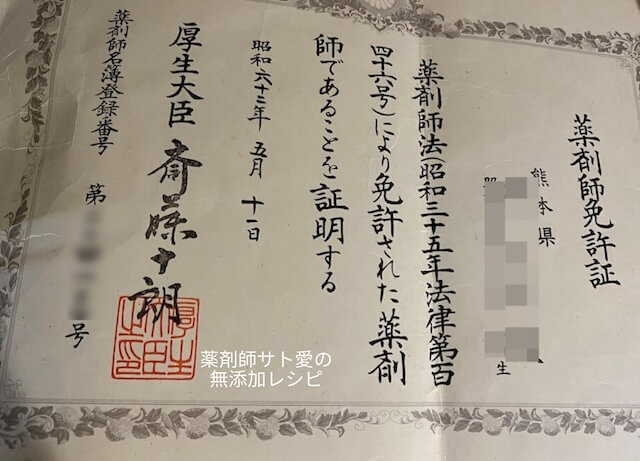 薬剤師免許証
熊本県
生
薬剤師法(昭和三十五年法律第百
四十六号)により免許された薬剤
師であることを証明する
昭和六十二年 五月 十一日
厚生大臣 斎藤十朗
厚生大臣之印
薬剤師名簿登録番号 第 号
薬剤師サト愛の
無添加レシピ